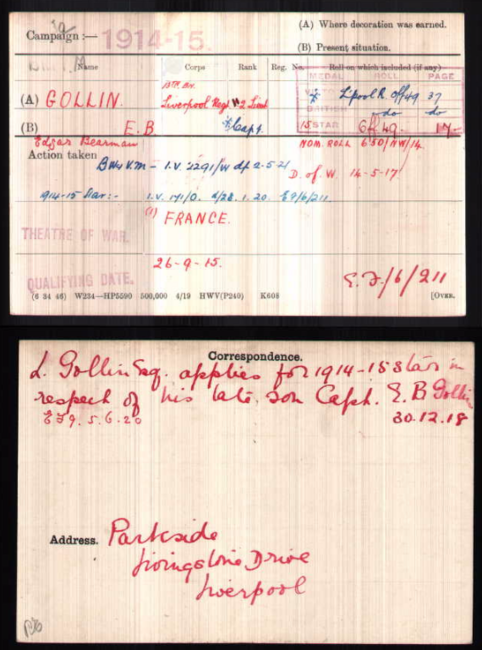 Campaign :— 1914-15.
(A) Where decoration was earned.
(B) Present situation.
Name Corps Rank Reg. No. Roll on which included (if any)
MEDAL ROLL PAGE
(A) GOLLIN. Liverpool Regt 2 Lieut
VICTORY L'pool R. off 49 37
(B) E.B. Capt.
BRITISH do do
15 STAR 6ff 49. 17
Edgar Bearman
NOM. ROLL 650/NW/14.
Action taken B.W & V.M - I.V. 1291/W d/
D. of W. 14-5-17
1914-15 Star:- I.V. 1.20 E9/6/211
(1) FRANCE.
THEATRE OF WAR.
26-9-15.
QUALIFYING DATE.
E.F/6/211
(6 34 46) W234—HP5590 500,000 4/19 HWV(P240) K608 [OVER.
Correspondence.
L. Gollin Esq. applies for 1914-15 Star in
respect of his late son Capt. E. B Gollin
EF9. 5.6.20 30.12.18
Address. Parkside
Livingstone Drive
Liverpool